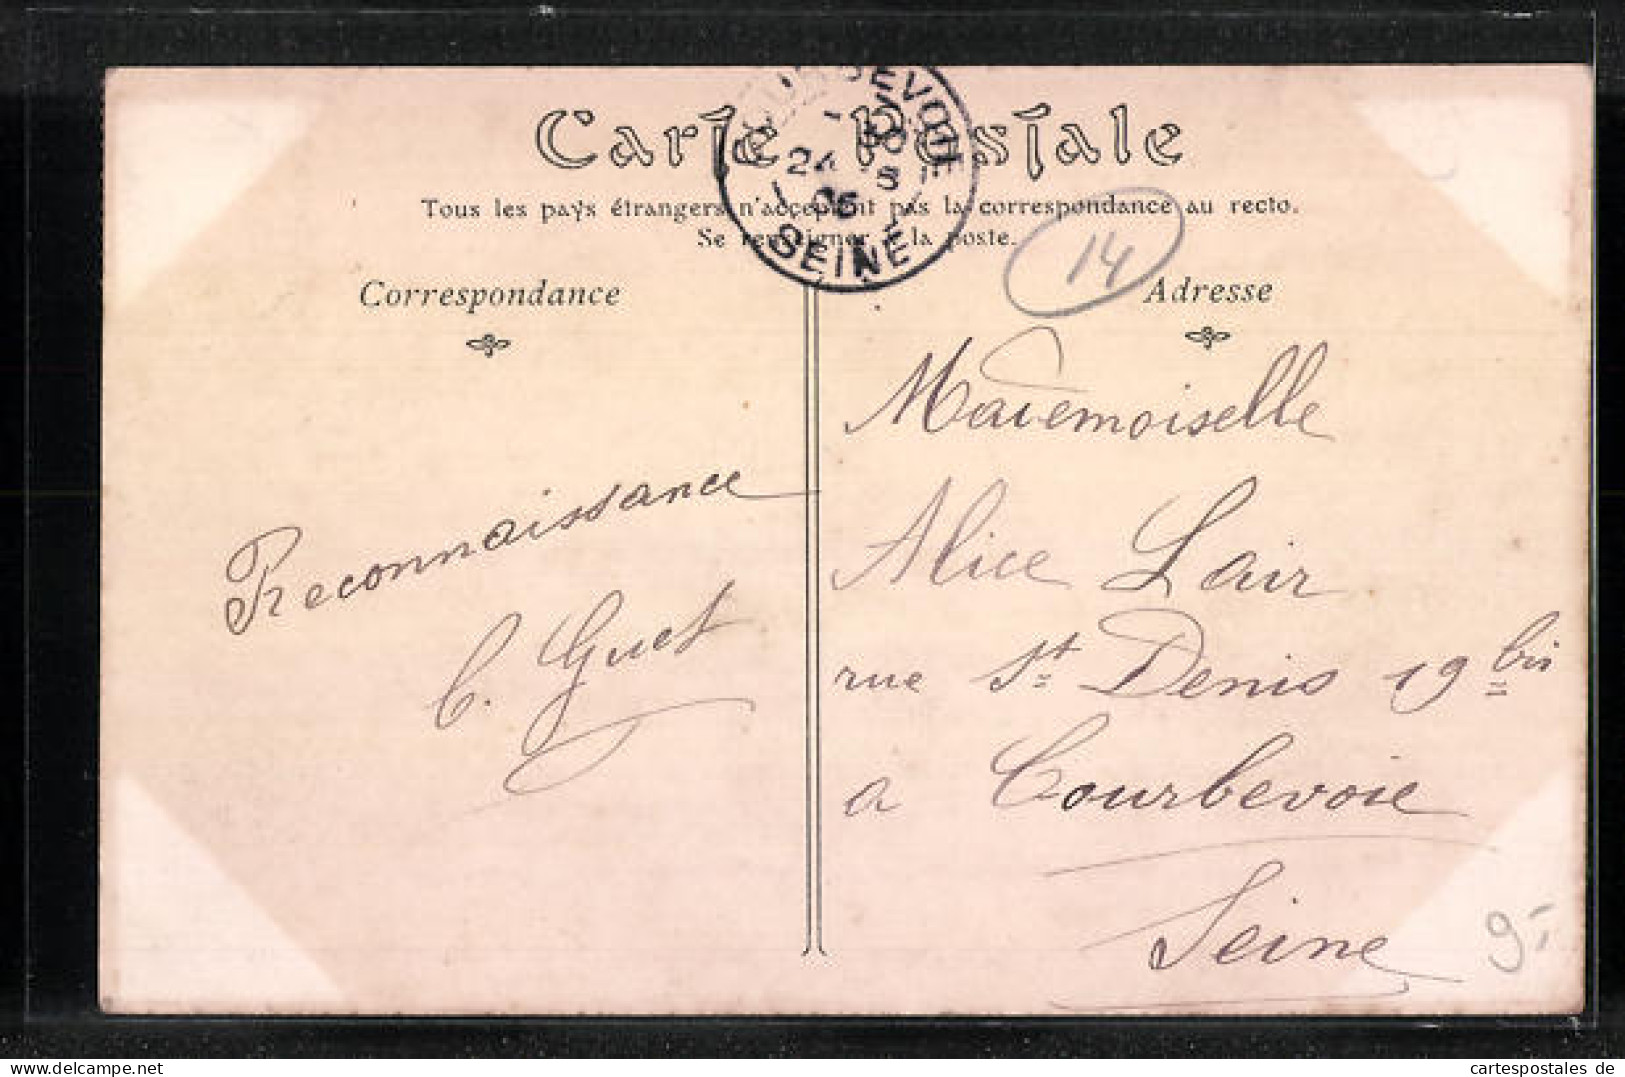 Carte Postale
Tous les pays étrangers n'acceptent pas la correspondance au recto.
Se renseigner à la poste.
COURBEVOIE
24
06
SEINE
14
Correspondance
Adresse
Reconnaissance
C. Guet
Mademoiselle
Alice Lair
rue St Denis 19 bis
a Courbevoie
Seine
9,-
www.cartespostales.eu
cartespostales de